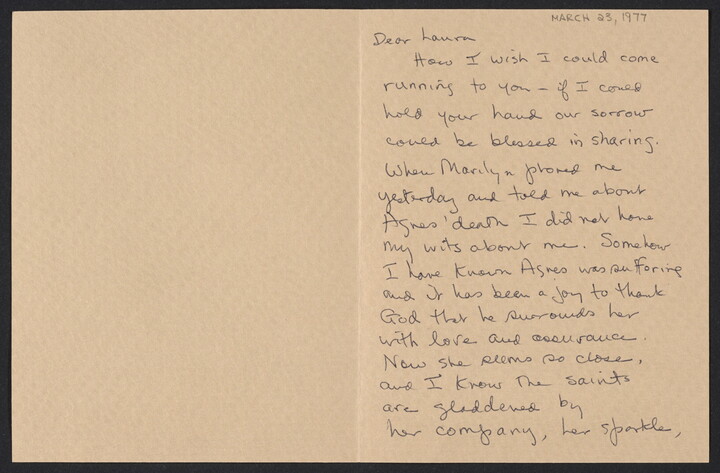 MARCH 23, 1977
Dear Laura
How I wish I could come
running to you – if I could
hold your hand our sorrow
could be blessed in sharing.
When Marilyn phoned me
yesterday and told me about
Agnes' death I did not have
my wits about me. Somehow
I have known Agnes was suffering
and it has been a joy to thank
God that he surrounds her
with love and assurance.
Now she seems so close,
and I know the saints
are gladdened by
her company, her sparkle,